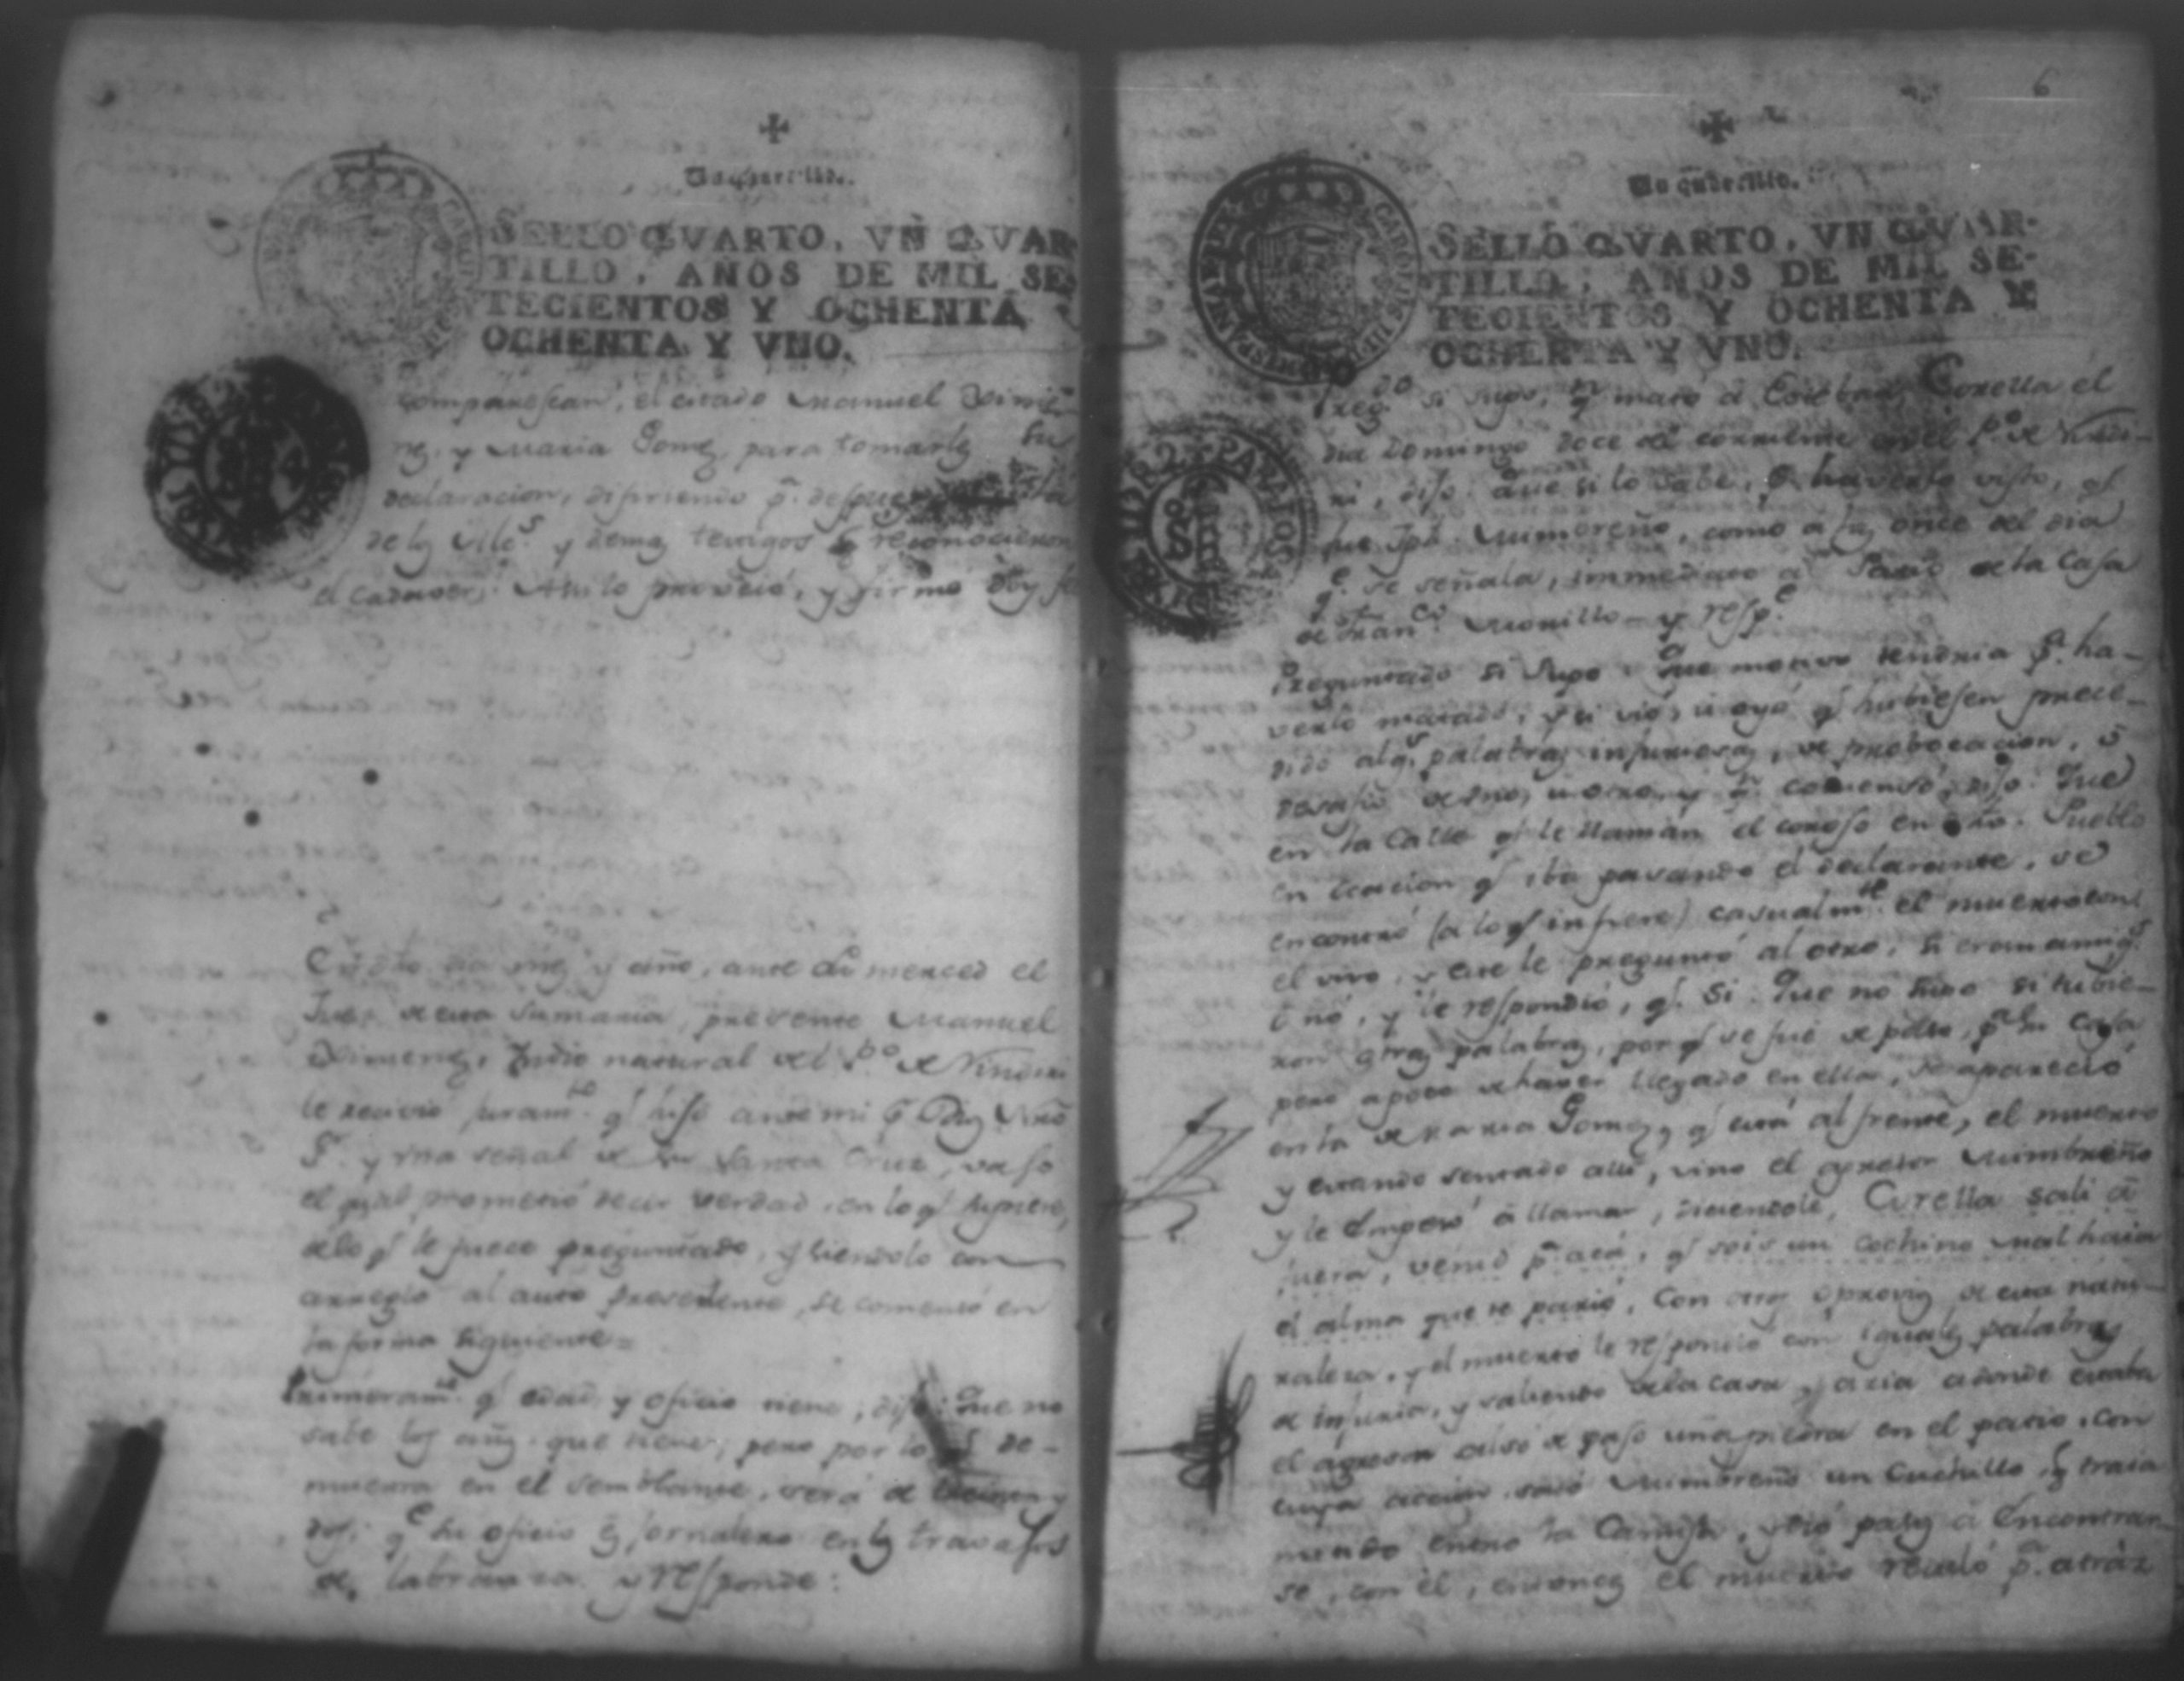 Un quartillo.
SELLO QVARTO, VN QVAR-
TILLO, AÑOS DE MIL SE-
TECIENTOS Y OCHENTA Y
OCHENTA Y VNO.
comparescan, el citado Manuel Ximé-
nez, y Maria Gomez, para tomarles su
declaracion, difiriendo pª. despues
de los y demas testigos q reconocieron
el cadaver. Assi lo proveió, y firmo doy fe
En dho dia mes y año, ante Su merced el
Juez de esta sumaria, presente Manuel
Ximenez, Indio natural del Pº. de Nindiri
le recivió juramtº. q hiso ante mi Dios Ntrô
Sr. y una señal de su Santa Cruz, vajo
el qual prometió decir verdad, en lo q supiere,
de lo q le fuere preguntado, y siendolo con
arreglo al auto precedente, se comensó en
la forma siguiente=
Primeramte. q edad, y oficio tiene, dijo: Que no
sabe los años que tiene, pero por lo q de-
muestra en el semblante, será de
dos; qe su oficio es jornalero en los travajos
de labranza y responde:
6
Un quartillo.
SELLO QVARTO, VN QVAR-
TILLO, AÑOS DE MIL SE-
TECIENTOS Y OCHENTA Y
OCHENTA Y VNO.
Pregdo si supo, qn mató á Esteban Corella el
dia Domingo doce del corriente en el Pº. de Nindi-
ri, dijo: Que si lo sabe, pr. haverlo visto, q
fue Jph. Quimoreño, como a las once del dia
qe. se señala, immediato al Patio de la Casa
de Franco. Morillo= y respe.
Preguntado si supo Que motivo tendria pª. ha-
verlo matado, y si vió, u oyó q hubiesen prece-
dido algs. palabras injuriosas, de probocacion, ó
desafio de uno, u otro, y qn comensó, dijo: Que
en la Calle q le llaman el coroso en dho. Pueblo
en ocacion q iba pasando el declarante, se
encontró (a lo q infiere) casualmte. el muerto con
el vivo, y este le preguntó al otro, si eran amigs.
ó nó, y le respondió, q. Si. Que no supo si tubie-
ron otras palabras, porq se fue de paso, pª su casa
pero a poco de haver llegado en ella, se aparecio
en la de Maria Gomez, q está al frente, el muerto
y estando sentado alli, vino el agresor Quimbreño
y le Empesó á llamar, diciendole, Corella salí á
fuera, vení pª acá, q sois un cochino mal haia
el alma que te parió, Con otros oprovios de esta natu-
raleza, y el muerto le respondió con iguales palabras
de injuria, y saliendo de la casa, azia adonde estaba
el agresor alsó de paso una piedra en el patio, con
cuya accion, sacó Quimbreño un Cuchillo, q traia
metido entre la Camisa, y dió pasos á Encontrar-
se, con él, entonces el muerto reculó pª. atráz